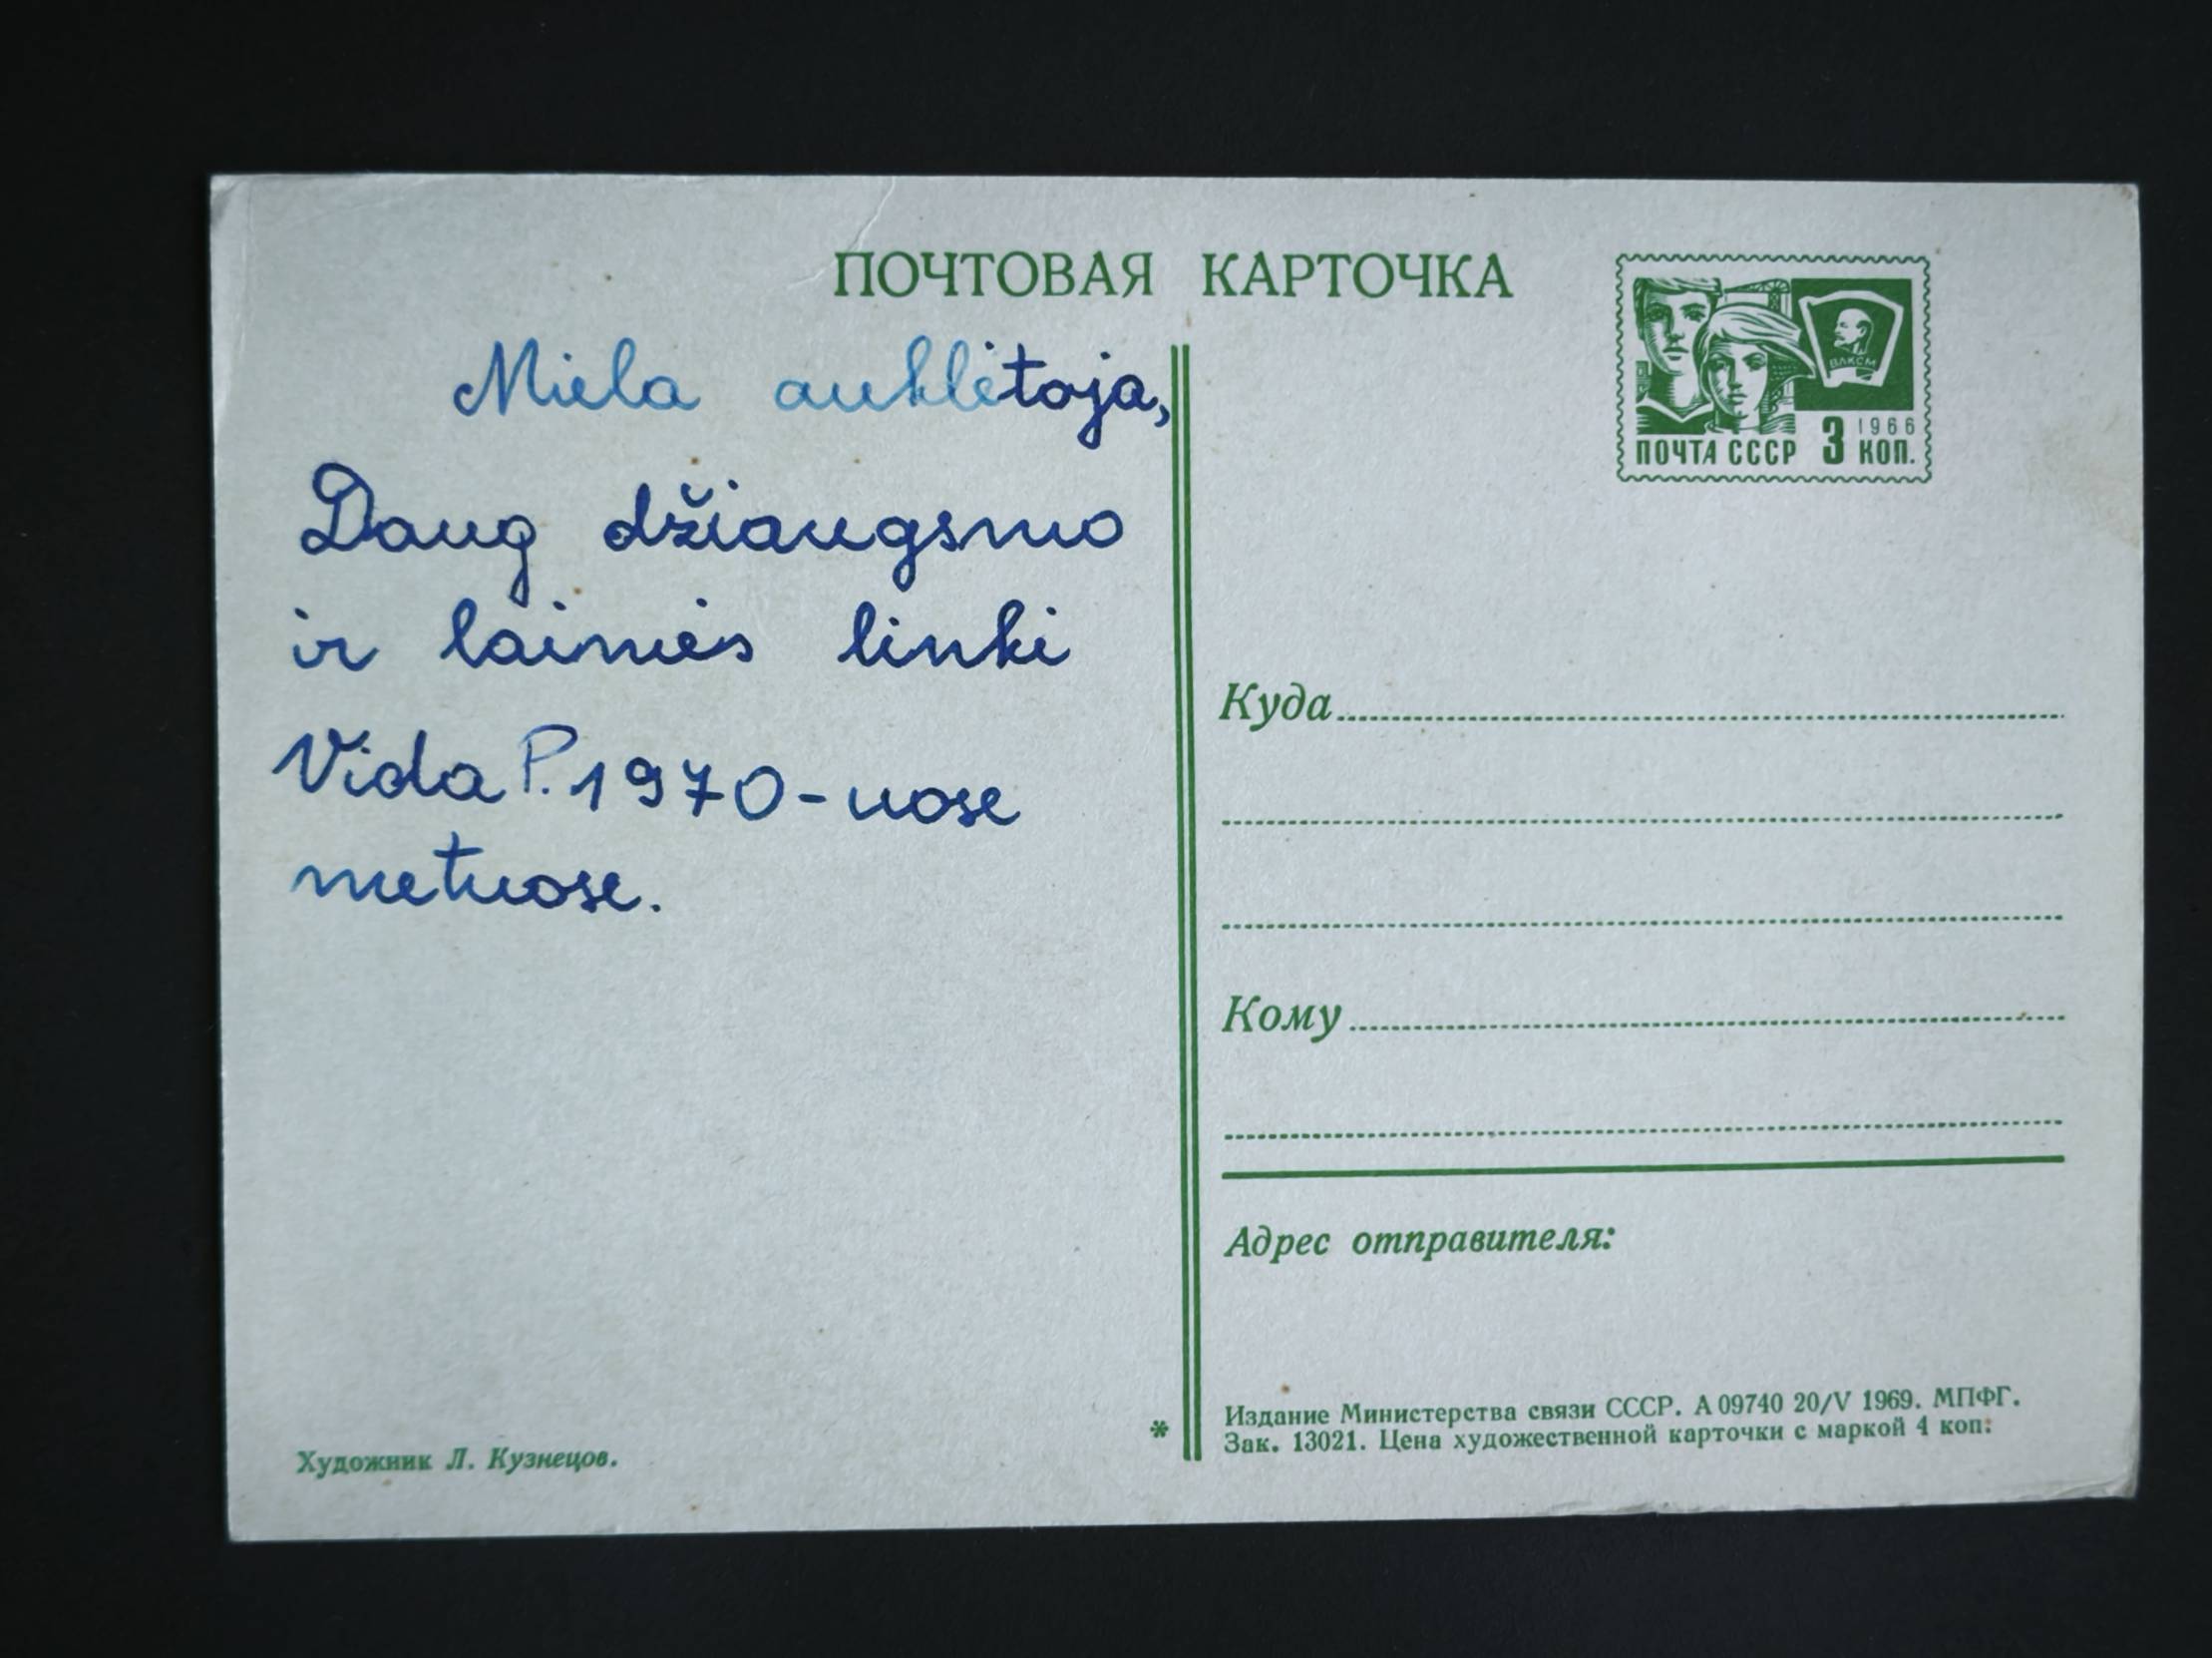 ПОЧТОВАЯ КАРТОЧКА
Miela auklėtoja,
Daug džiaugsmo
ir laimės linki
Vida P. 1970-uose
metuose.
Художник Л. Кузнецов.
*
ВЛКСМ
1966
ПОЧТА СССР 3 КОП.
Куда
Кому
Адрес отправителя:
Издание Министерства связи СССР. А 09740 20/V 1969. МПФГ.
Зак. 13021. Цена художественной карточки с маркой 4 коп.